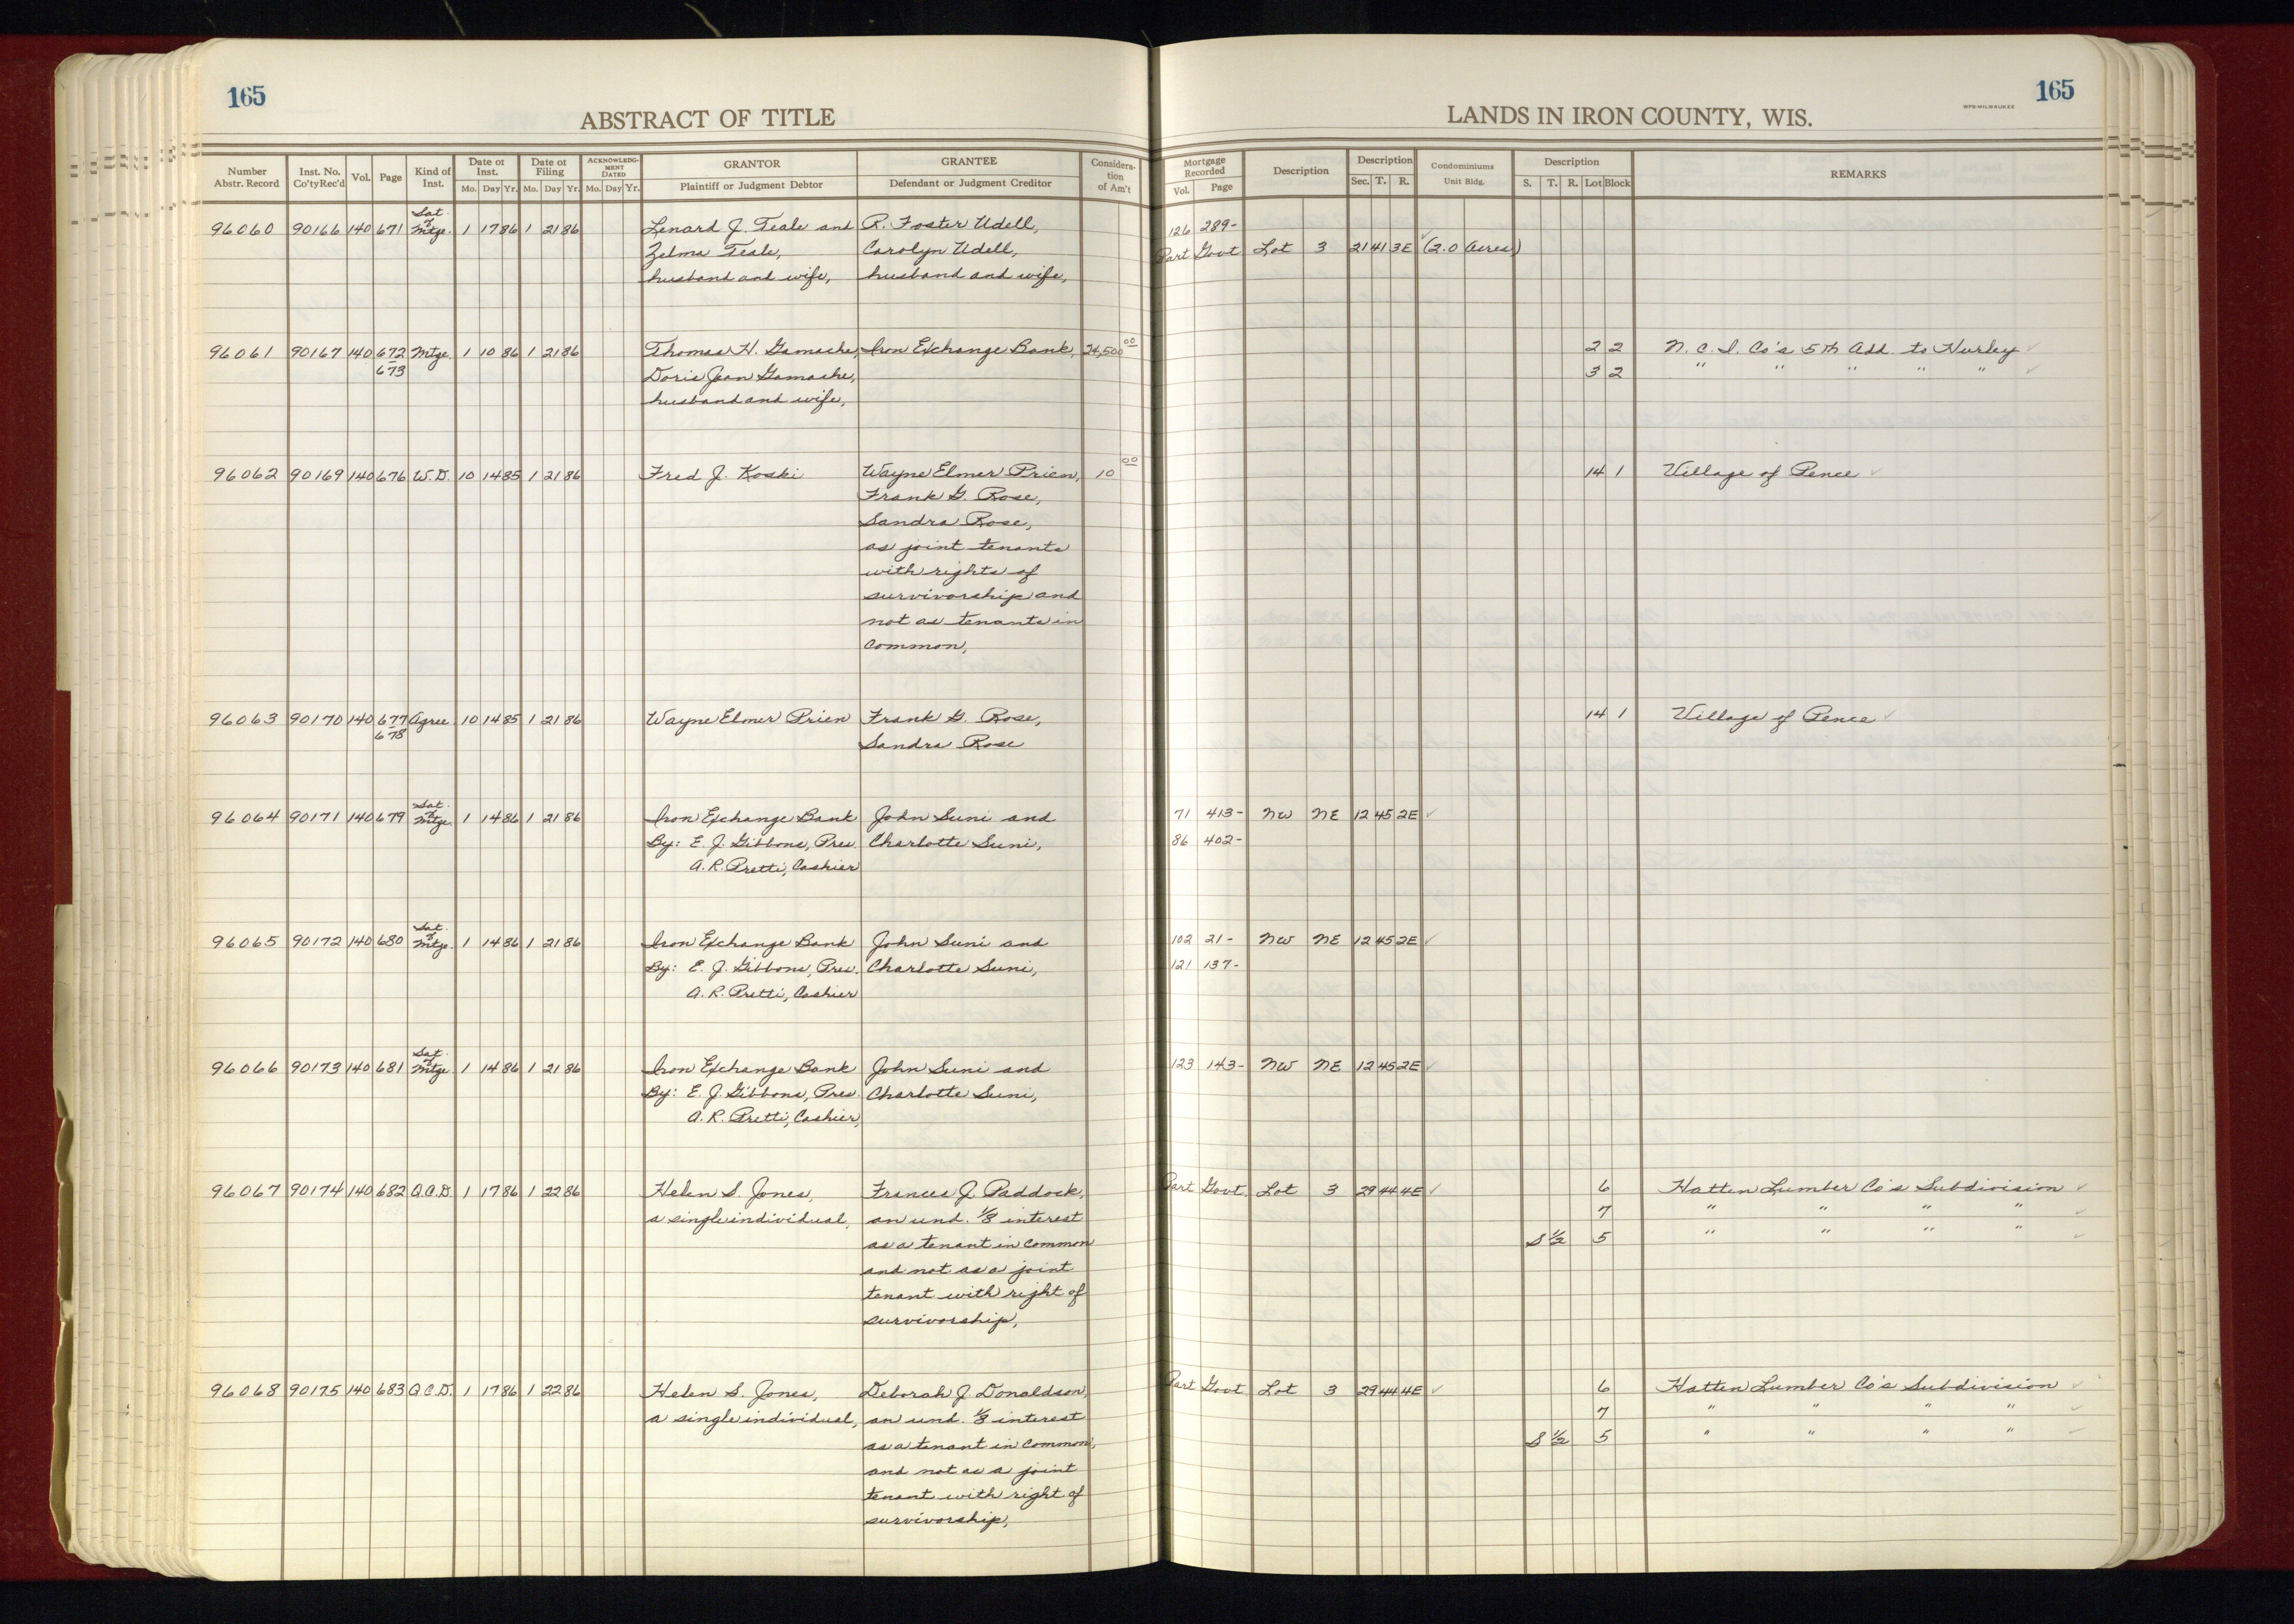 165
165
ABSTRACT OF TITLE
LANDS IN IRON COUNTY, WIS.
WPB-MILWAUKEE
Number Abstr. Record | Inst. No. Co'ty Rec'd | Vol. | Page | Kind of Inst. | Date of Inst. Mo. Day Yr. | Date of Filing Mo. Day Yr. | ACKNOWLEDGMENT DATED Mo. Day Yr. | GRANTOR Plaintiff or Judgment Debtor | GRANTEE Defendant or Judgment Creditor | Consideration of Am't | Mortgage Recorded Vol. Page | Description | Description Sec. T. R. | Condominiums Unit Bldg. | Description S. T. R. Lot Block | REMARKS
96060 90166 140 671 Sat. of Mtge. 1 17 86 1 21 86 Lenard J. Teale and R. Foster Udell, 126 289-
Zelma Teale, Carolyn Udell, Part Govt Lot 3 21 41 3E (2.0 Acres)
husband and wife, husband and wife,
96061 90167 140 672- Mtge. 1 10 86 1 21 86 Thomas H. Gamache, Iron Exchange Bank, 24,500 00 2 2 N. C. I. Co's 5th Add. to Hurley
673 Doris Jean Gamache, 3 2 " " " " "
husband and wife,
96062 90169 140 676 W.D. 10 14 85 1 21 86 Fred J. Koski Wayne Elmer Prien, 10 00 14 1 Village of Pence
Frank G. Rose,
Sandra Rose,
as joint tenants
with rights of
survivorship and
not as tenants in
common,
96063 90170 140 677- Agree. 10 14 85 1 21 86 Wayne Elmer Prien Frank G. Rose, 14 1 Village of Pence
678 Sandra Rose
96064 90171 140 679 Sat. of Mtge. 1 14 86 1 21 86 Iron Exchange Bank John Suni and 71 413- NW NE 12 45 2E
By: E. J. Gibbons, Pres. Charlotte Suni, 86 402-
A. R. Pretti, Cashier
96065 90172 140 680 Sat. of Mtge. 1 14 86 1 21 86 Iron Exchange Bank John Suni and 102 21- NW NE 12 45 2E
By: E. J. Gibbons, Pres. Charlotte Suni, 121 137-
A. R. Pretti, Cashier
96066 90173 140 681 Sat. of Mtge 1 14 86 1 21 86 Iron Exchange Bank John Suni and 123 143- NW NE 12 45 2E
By: E. J. Gibbons, Pres. Charlotte Suni,
A. R. Pretti, Cashier,
96067 90174 140 682 Q.C.D. 1 17 86 1 22 86 Helen S. Jones, Frances J. Paddock, Part Govt Lot 3 29 44 4E 6 Hatten Lumber Co's Subdivision
a single individual, an und. 1/8 interest 7 " " " "
as a tenant in common S 1/2 5 " " " "
and not as a joint
tenant with right of
survivorship,
96068 90175 140 683 Q.C.D. 1 17 86 1 22 86 Helen S. Jones, Deborah J. Donaldson, Part Govt Lot 3 29 44 4E 6 Hatten Lumber Co's Subdivision
a single individual, an und. 1/8 interest 7 " " " "
as a tenant in common, S 1/2 5 " " " "
and not as a joint
tenant with right of
survivorship,